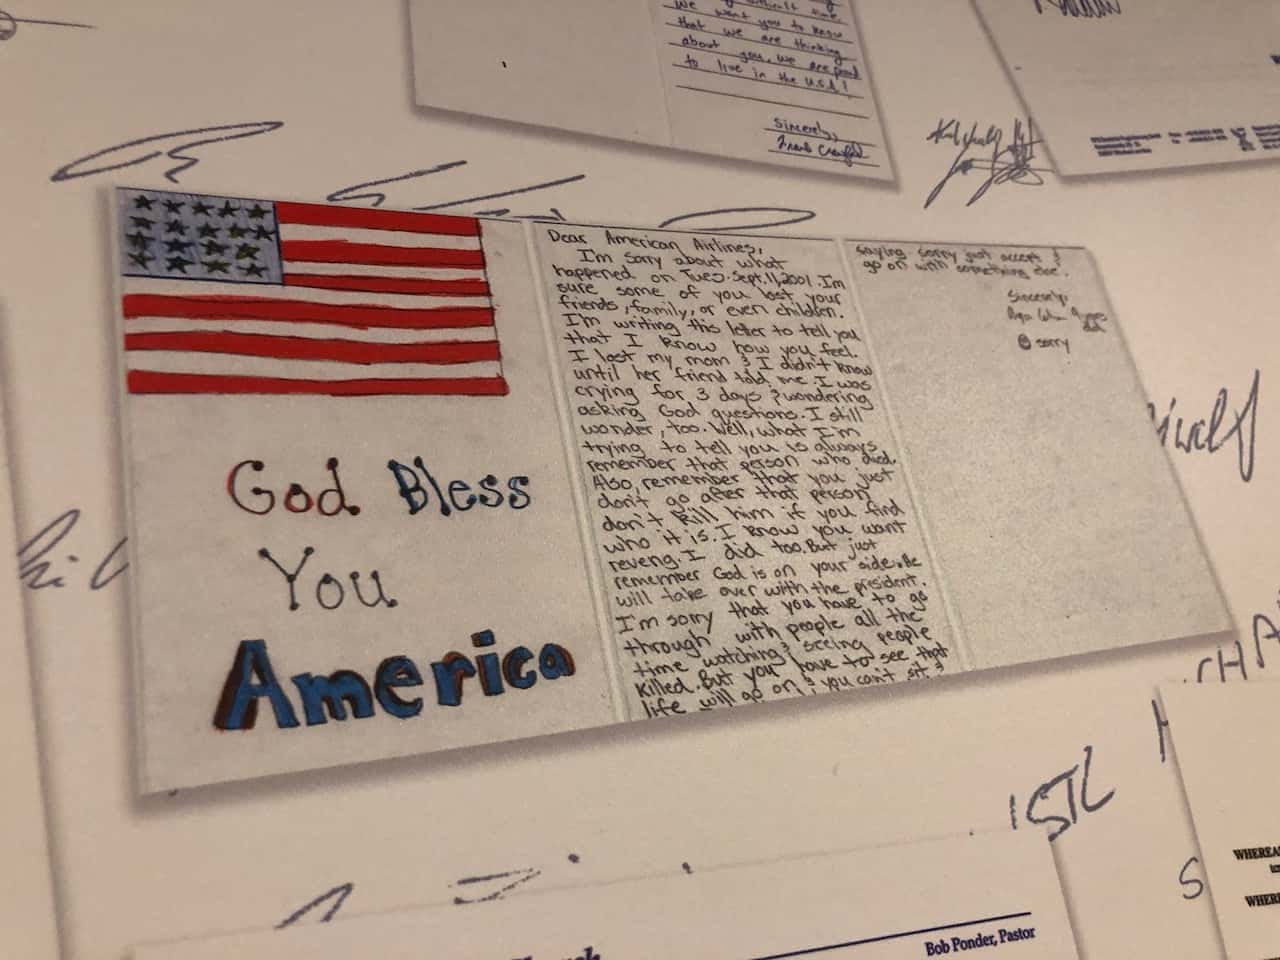 We want you to know
that we are thinking
about you, we are proud
to live in the U.S.A!
Sincerely,
God Bless
You
America
Dear American Airlines,
I'm sorry about what
happened on Tues. Sept. 11, 2001. I'm
sure some of you lost your
friends, family, or even children.
I'm writing this letter to tell you
that I know how you feel.
I lost my mom & I didn't know
until her friend told me. I was
crying for 3 days & wondering
asking God questions. I still
wonder, too. Well, what I'm
trying to tell you is always
remember that person who died.
Also, remember that you just
don't go after that person
don't kill him if you find
who it is. I know you want
reveng. I did too. But just
remember God is on your side. He
will take over with the president.
I'm sorry that you have to go
through with people all the
time watching & seeing people
killed. But you have to see that
life will go on & you can't sit &
saying sorry just accept &
go on with something else.
Sincerely,
sorry
ISTL
S
WHEREA
WHERE
Bob Ponder, Pastor